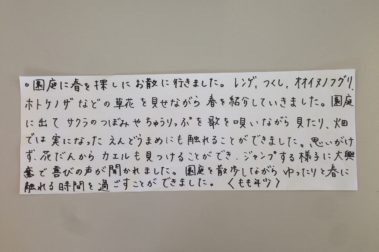 ○園庭に春を探しにお散に行きました。レンゲ、つくし、オオイヌノフグリ、
ホトケノザなどの草花を見せながら春を紹介していきました。園庭
に出てサクラのつぼみやちゅうりっぷを歌を唄いながら見たり、畑
では実になったえんどうまめにも触れることができました。思いがけ
ず、花だんからカエルも見つけることができ、ジャンプする様子に大興
奮で喜びの声が聞かれました。園庭を散歩しながらゆったりと春に
触れる時間を過ごすことができました。〈もも組〉